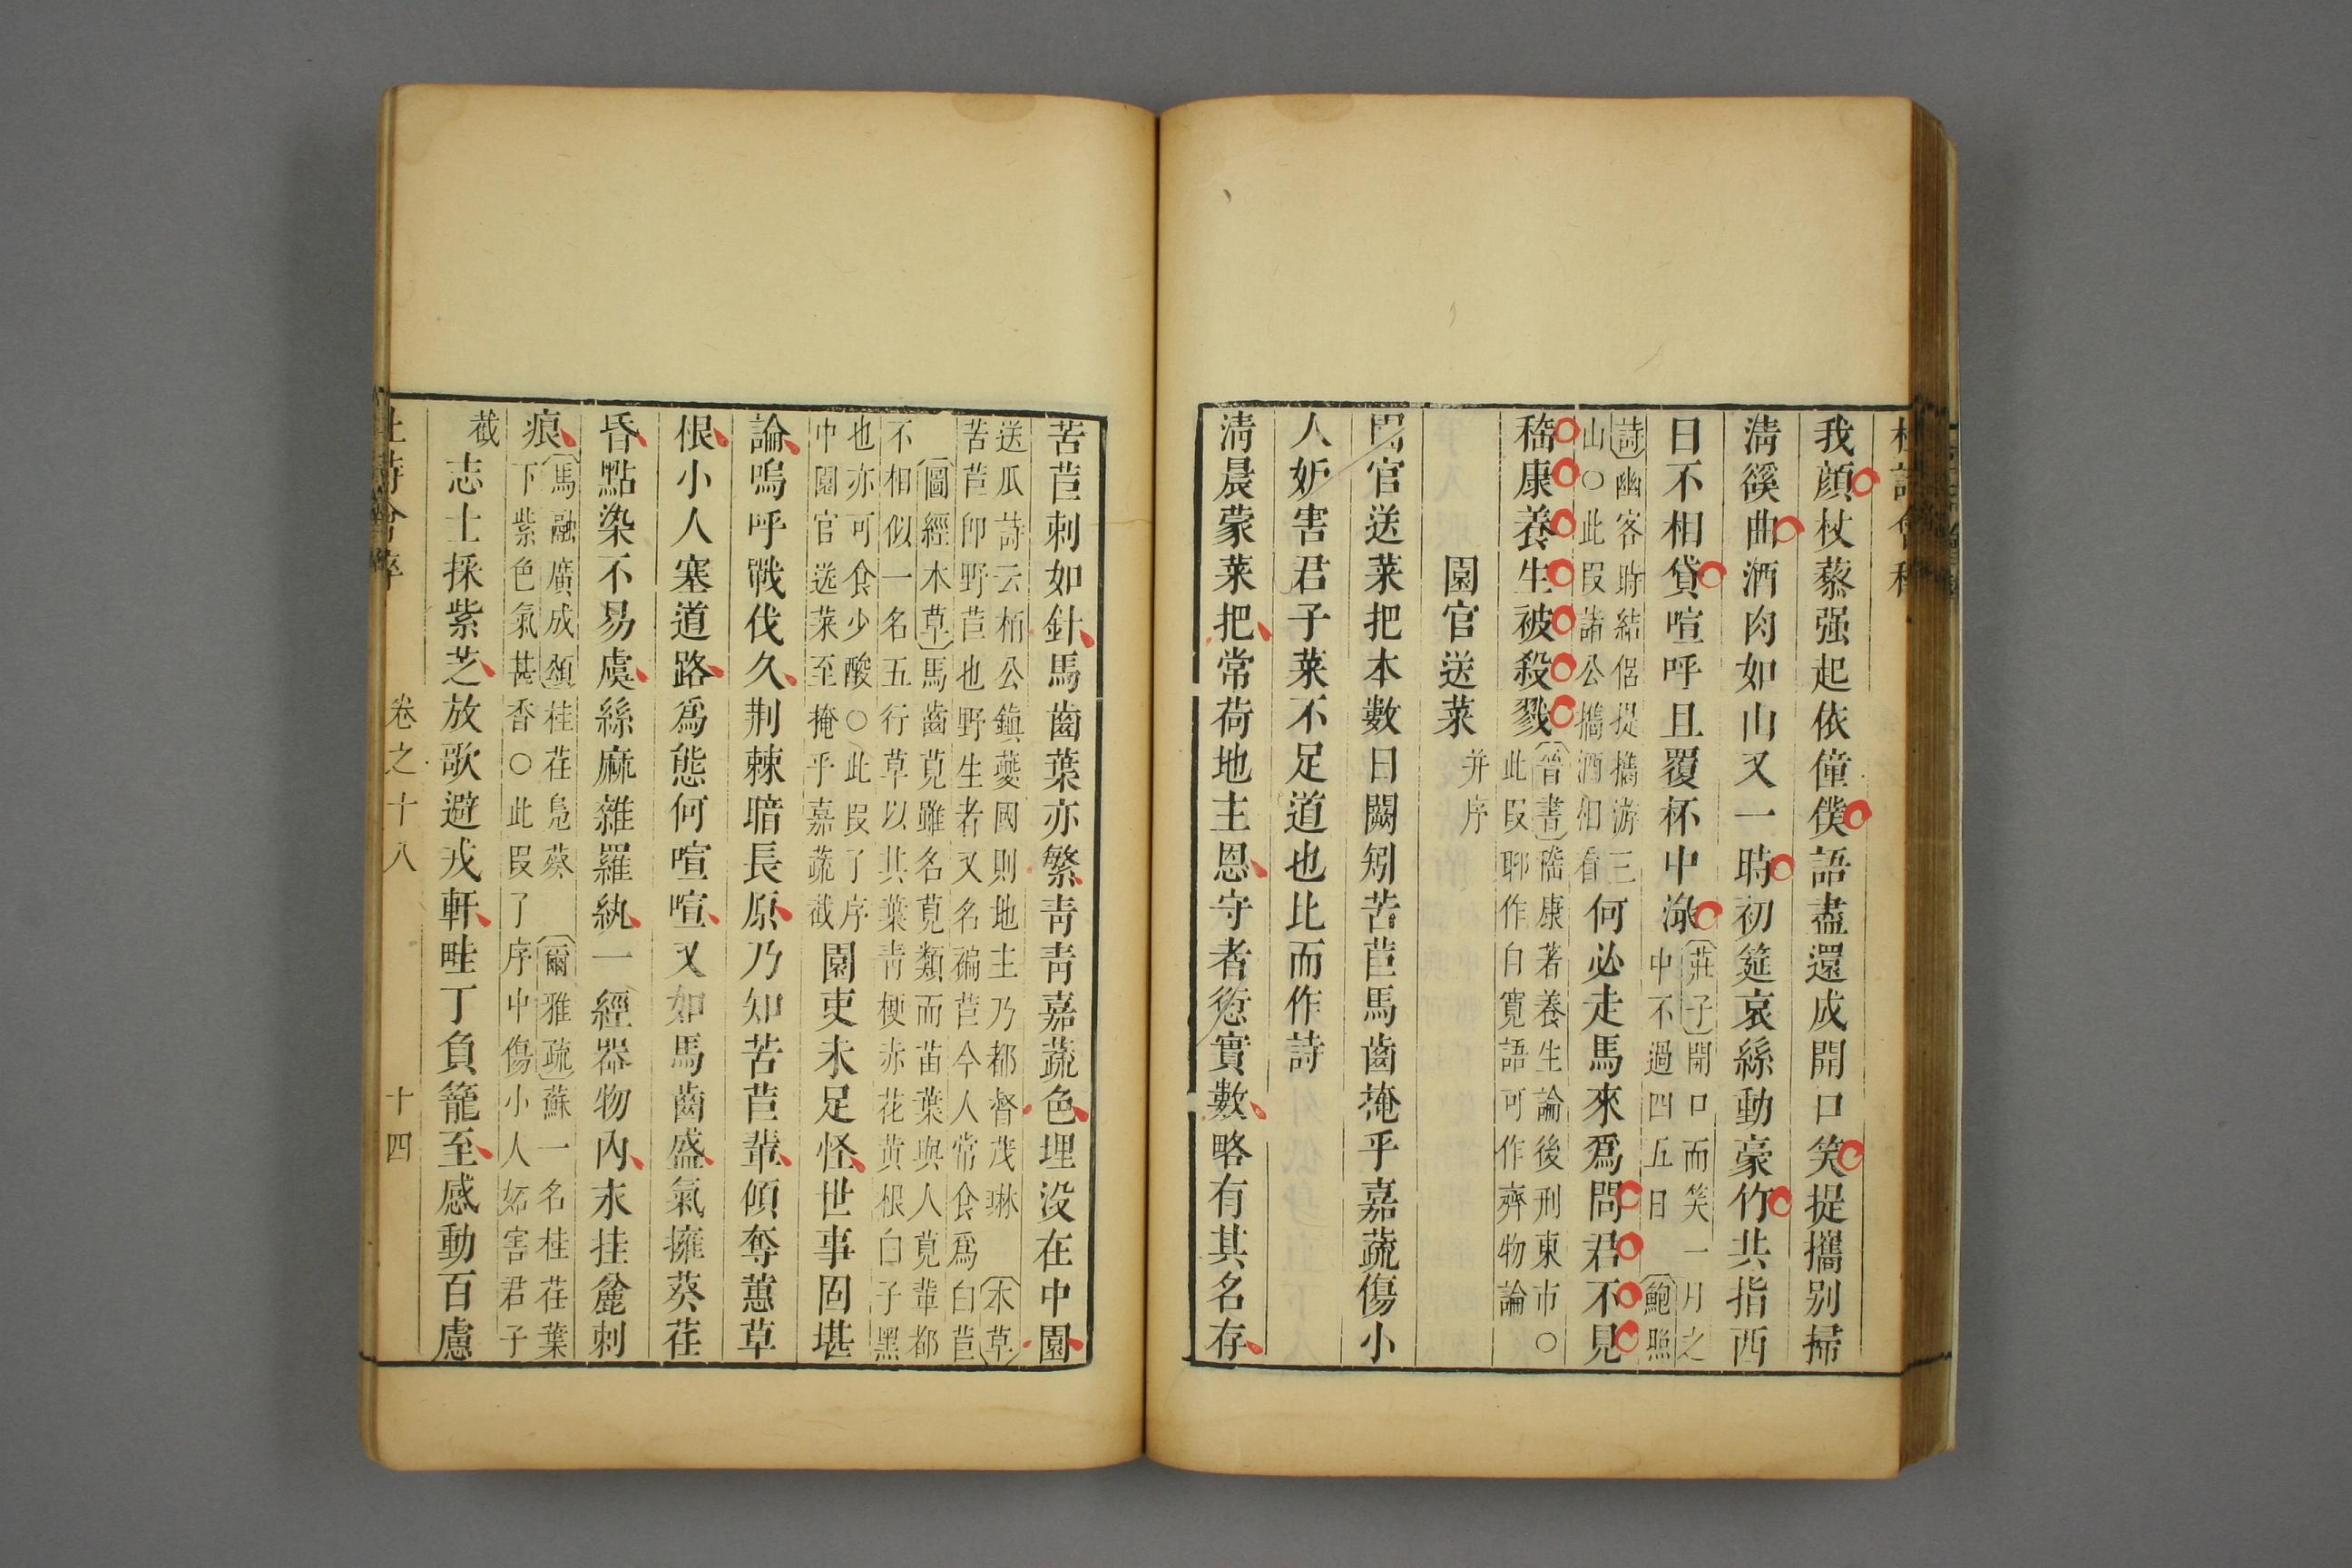 我顔杖藜强起依僮僕語盡還成開口笑提攜别掃
淸谿曲酒肉如山又一時初筵哀絲動豪竹共指西
日不相貸喧呼且覆杯中渌
莊子開口而笑一月之
中不過四五日 鮑照
詩幽客時結侣提攜游三
山○此叚諸公攜酒相看
何必走馬來爲問君不見
嵇康養生被殺戮
晉書嵇康著養生論後刑東市○
此叚聊作自寬語可作齊物論
園官送菜
并序
園官送菜把本數日闕矧苦苣馬齒掩乎嘉蔬傷小
人妒害君子菜不足道也比而作詩
淸晨蒙菜把常荷地主恩守者愆實數略有其名存
苦苣刺如針馬齒葉亦繁靑靑嘉蔬色埋没在中園
送瓜詩云栢公鎭夔國則地主乃都督茂琳 本草
苦苣卽野苣也野生者又名褊苣今人常食爲白苣
圖經本草馬齒莧雖名莧類而苗葉與人莧輩都
不相似一名五行草以其葉靑梗赤花黄根白子黑
也亦可食少酸○此叚了序
中園官送菜至掩乎嘉蔬截
園吏未足怪世事固堪
論嗚呼戰伐久荆棘暗長原乃知苦苣輩傾奪蕙草
根小人塞道路爲態何喧喧又如馬齒盛氣擁葵荏
昏點染不易虞絲麻雜羅紈一經器物內永挂麄刺
痕
馬融廣成頌桂荏鳧葵 爾雅疏蘇一名桂荏葉
下紫色氣甚香○此叚了序中傷小人妬害君子
截
志士採紫芝放歌避戎軒畦丁負籠至感動百慮
卷之十八
十四